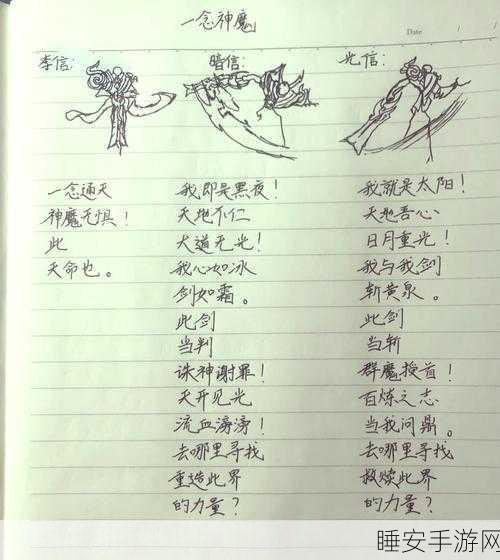 一念神魔
Date
李信:
暗信:
光信:
一念通天
神魔无惧!
此
天命也。
我即是黑夜!
天地不仁
大道无光!
我心如冰
剑如霜。
此剑
当判
诛神谢罪!
天开见光
流血滂滂!
去哪里寻找
重造此界
的力量?
我就是太阳!
天地吾心
日月重光!
我与我剑
斩黄泉。
此剑
当斩
群魔授首!
百炼之志
当我问鼎。
去哪里寻找
救赎此界
的力量?
睡安手游网